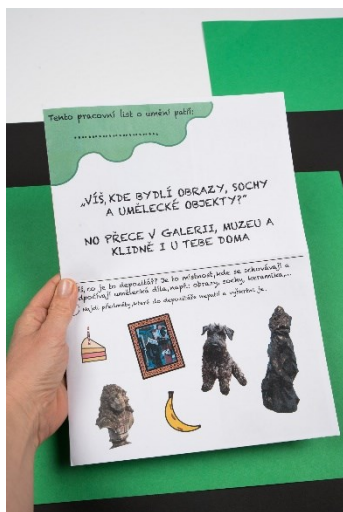 Tento pracovní list o umění patří:
„VÍŠ, KDE BYDLÍ OBRAZY, SOCHY
A UMĚLECKÉ OBJEKTY?"
NO PŘECE V GALERII, MUZEU A
KLIDNĚ I U TEBE DOMA
co je to depozitář? Je to místnost, kde se schovávají a
odpočívají umělecká díla, např.: obrazy, sochy, keramika,...
Najdi předměty, které do depozitáře nepatří a vyškrtni je.